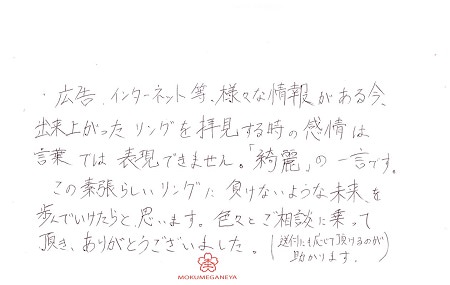 ・広告、インターネット等、様々な情報がある今、
出来上がったリングを拝見する時の感情は
言葉では表現できません。「綺麗」の一言です。
この素張らしいリングに負けないような未来を
歩んでいけたらと思います。色々とご相談に乗って
頂き、ありがとうございました。(送付にも応じて頂けるのが
助かります。)
MOKUMEGANEYA